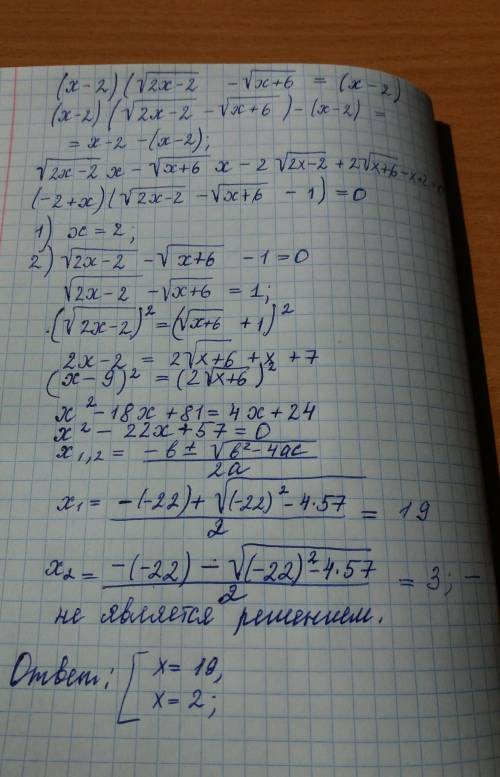 (x-2)(√2x-2 -√x+6 = (x-2)
(x-2)(√2x-2 -√x+6)-(x-2) =
= x-2 -(x-2);
√2x-2 x - √x+6 x - 2√2x-2 + 2√x+6 -x+2
(-2+x)(√2x-2 -√x+6 -1)=0
1) x=2;
2) √2x-2 -√x+6 -1=0
√2x-2 -√x+6 = 1;
(√2x-2)² = (√x+6 +1)²
2x-2 = 2√x+6 + x +7
(x-9)² = (2√x+6)²
x² -18x +81 = 4x+24
x² - 22x +57 = 0
x₁,₂ = (-в ± √в²-4ac)/2a
x₁ = (-(-22)+√(-22)²-4·57)/2 = 19
x₂ = (-(-22) - √(-22)²-4·57)/2 = 3; -
не является решением.
Ответ: [ x= 19,
x= 2;